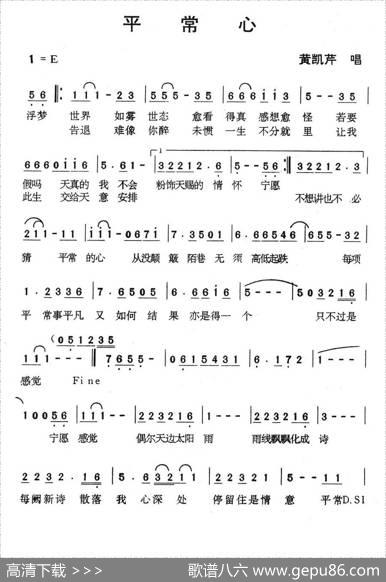 平常心
1=E 黄凯芹 唱
5 6 | 1 1 1 - 2 3 | 5 5 5 - 3 5 | 6 6 6 i i 3 | 5 - - 3 5 |
浮梦 世界 如雾 世态 愈看 得真 感想愈 怪 若要
告退 难像 你醉 未惯 一生 不分就 里 让我
6 6 6 0 i i 6 | 5 . 6 1 - | 3 2 2 1 2 . 6 | 5 - - 5 6 :| 3 2 2 1 2 . 3 |
假吗 天真的 我 不会 粉饰天赐的 情 怀 宁愿
此生 交给天 意 安排 不想讲也不 必
2 1 1 - 1 1 | i i i - 0 6 7 i | 7 . 3 5 0 1 | 6 . 6 6 5 4 6 | 6 5 5 - 3 2 |
猜 平常的心 从没颠 簸陌巷 无 须 高低起跌 每项
1 . 2 3 3 6 | 7 . 6 5 0 5 | 6 . 6 6 i 6 | 5 - - - | 5 0 3 2 1 6 |
平 常事平凡 又 如何 结 果 亦是得一 个 只不过是
( 0 5 1 2 3 5
1 1 1 - ) | 7 6 5 5 - | 0 6 1 5 4 3 1 | 6 . 1 7 2 | 1 - - - |
感觉 Fine
1 0 0 5 6 | 1 1 1 - 2 | 2 2 3 2 1 6 | 1 - - - | 2 2 3 2 1 6 | 3 - - - |
宁愿 感觉 偶尔天边太阳 雨 雨线飘飘化成 诗
2 2 2 3 2 . 1 6 | 5 . 6 3 - | 2 . 3 5 3 | 2 2 3 2 1 6 | 1 - - 5 6 ‖
每阙新诗 散落 我 心深 处 停留住是 情 意 平常D.S1
高清下载 >>>
歌谱八六 www.gepu86.com